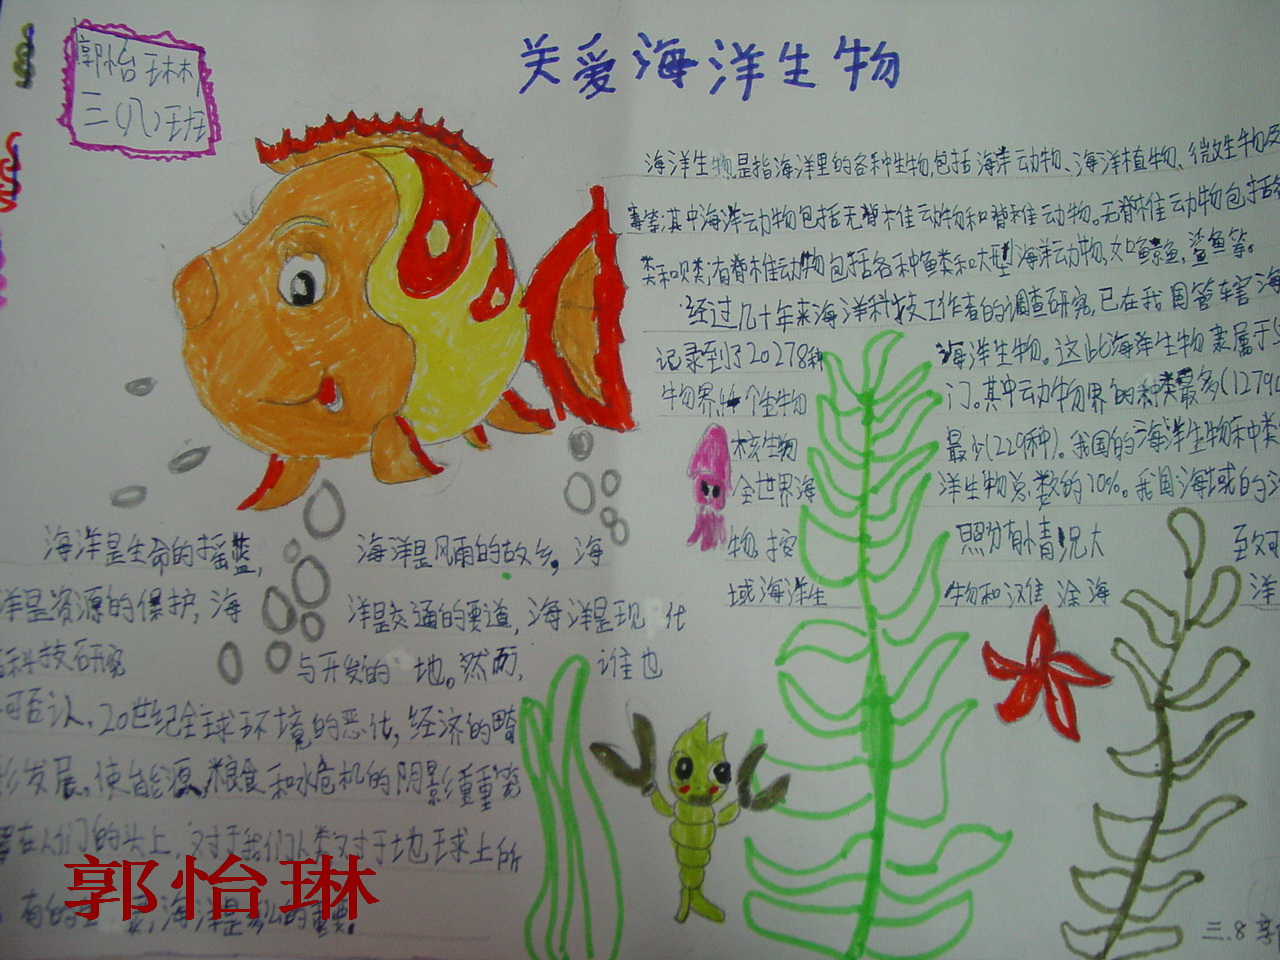 郭怡琳
三(八)班
关爱海洋生物
海洋生物是指海洋里的各种生物,包括海洋动物、海洋植物、微生物及
等;其中海洋动物包括无脊椎动物和脊椎动物。无脊椎动物包括各
类和贝类;有脊椎动物包括各种鱼类和大型海洋动物,如鲸鱼,鲨鱼等。
经过几十年来海洋科技工作者的调查研究,已在我国管辖海
记录到了20278种 海洋生物。这些海洋生物隶属于
生物 门。其中动物界的种类最多(1279
核生物 最少(229种)。我国的海洋生物种类
全世界海 洋生物总数的10%。我国海域的海
物,按 照分布情况大 致
域海洋生 物和滩涂海 洋
海洋是生命的摇篮, 海洋是风雨的故乡,海
洋是资源的保护,海 洋是交通的要道,海洋是现代
科技研究 与开发的 地。然而, 谁也
可否认,20世纪全球环境的恶化,经济的畸
形发展,使能源,粮食和水危机的阴影重重笼
罩在人们的头上,对于我们人类对于地球上所
有的 海洋是多么的重要。
郭怡琳
三.8